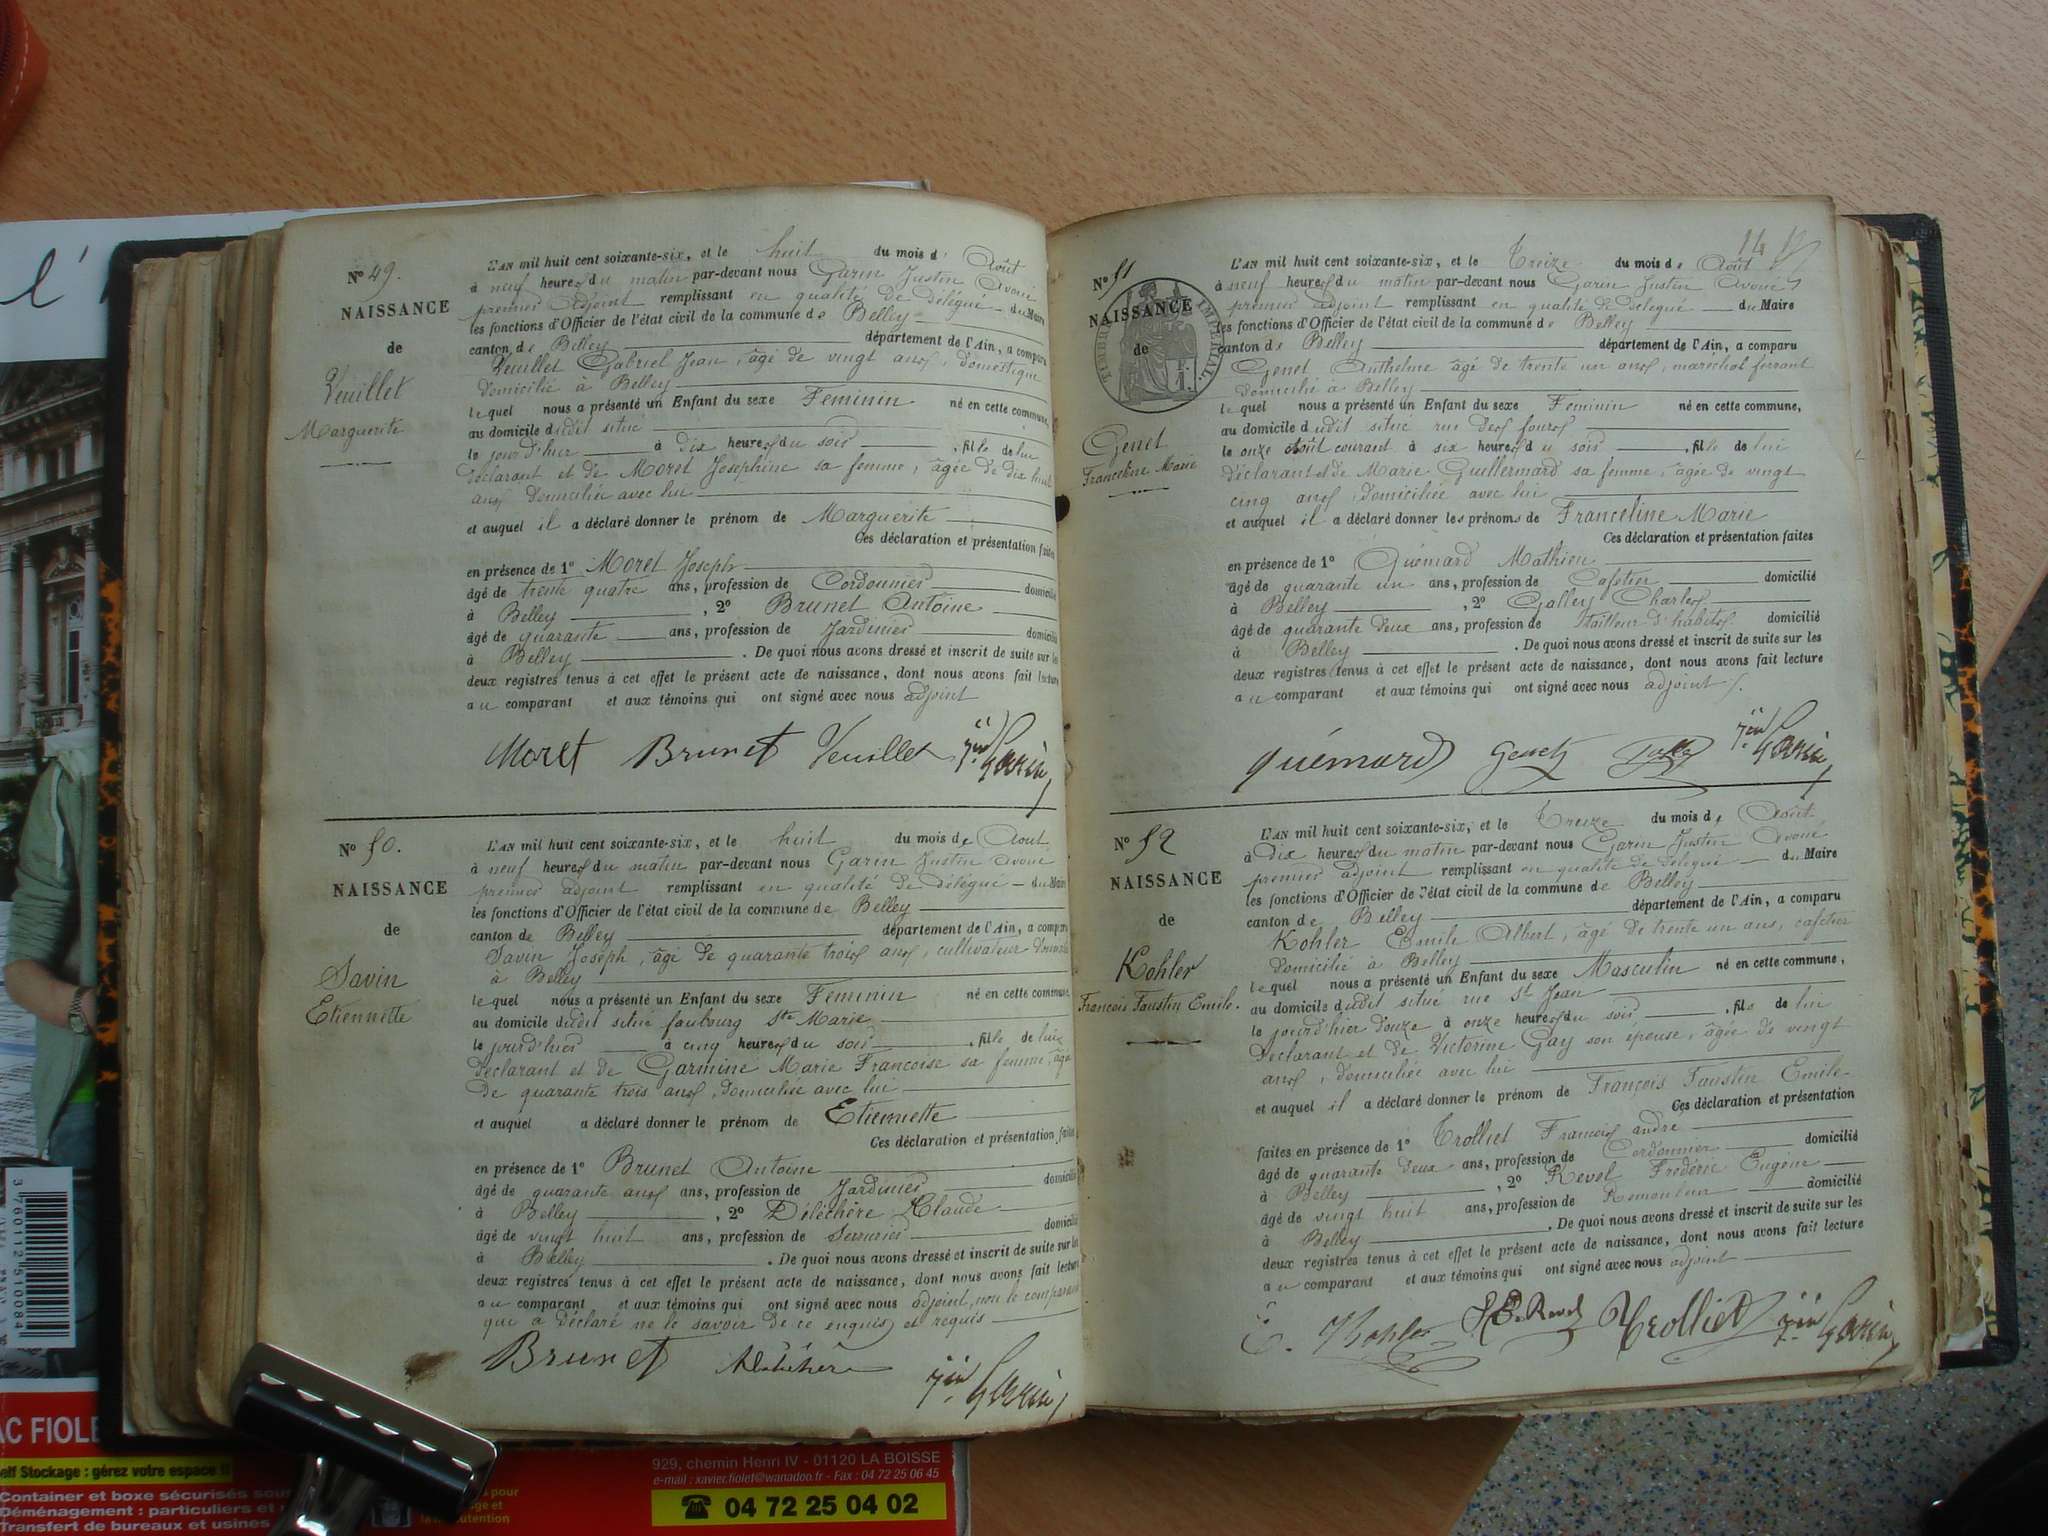 Nº 49.
NAISSANCE
de
Veuillet
Marguerite
L'AN mil huit cent soixante-six, et le huit du mois d' Août
à neuf heures du matin par-devant nous Garin Justin Avoué
premier adjoint remplissant en qualité de délégué du Maire
les fonctions d'Officier de l'état civil de la commune de Belley
canton de Belley département de l'Ain, a comparu
Veuillet Gabriel Jean, âgé de vingt ans, domestique
domicilié à Belley
lequel nous a présenté un Enfant du sexe Feminin né en cette commune,
au domicile dudit situé
le jour d'hier à dix heures du soir, fille de lui
déclarant et de Moret Josephine sa femme, âgée de dix huit
ans domiciliée avec lui
et auquel il a déclaré donner le prénom de Marguerite
Ces déclaration et présentation faites
en présence de 1º Moret Joseph
âgé de trente quatre ans, profession de Cordonnier domicilié
à Belley, 2º Brunet Antoine
âgé de quarante ans, profession de Jardinier domicilié
à Belley. De quoi nous avons dressé et inscrit de suite sur les
deux registres tenus à cet effet le présent acte de naissance, dont nous avons fait lecture
au comparant et aux témoins qui ont signé avec nous adjoint
Moret Brunet Veuillet Garin
Nº 50.
NAISSANCE
de
Savin
Etiennette
L'AN mil huit cent soixante-six, et le huit du mois de Aout
à neuf heures du matin par-devant nous Garin Justin avoué
premier adjoint remplissant en qualité de délégué du Maire
les fonctions d'Officier de l'état civil de la commune de Belley
canton de Belley département de l'Ain, a comparu
Savin Joseph, âgé de quarante trois ans, cultivateur
à Belley
lequel nous a présenté un Enfant du sexe Feminin né en cette commune,
au domicile dudit situé faubourg Ste Marie
le jour d'hier à cinq heures du soir, fille de lui
déclarant et de Garmine Marie Francoise sa femme, âgée
de quarante trois ans, domiciliée avec lui
et auquel a déclaré donner le prénom de Etiennette
Ces déclaration et présentation faites
en présence de 1º Brunet Antoine
âgé de quarante ans ans, profession de Jardinier domicilié
à Belley, 2º Déléchère Claude
âgé de vingt huit ans, profession de Serrurier domicilié
à Belley. De quoi nous avons dressé et inscrit de suite sur les
deux registres tenus à cet effet le présent acte de naissance, dont nous avons fait lecture
au comparant et aux témoins qui ont signé avec nous adjoint, non le comparant
que a déclaré ne le savoir de ce enquis et requis
Brunet Garin
14
Nº 51
NAISSANCE
de
TIMBRE IMPERIAL
Genet
Franceline Marie
L'AN mil huit cent soixante-six, et le Treize du mois de Août
à neuf heures du matin par-devant nous Garin Justin Avoué
premier adjoint remplissant en qualité de délégué du Maire
les fonctions d'Officier de l'état civil de la commune de Belley
canton de Belley département de l'Ain, a comparu
Genet Anthelme âgé de trente un ans, maréchal ferrant
domicilié à Belley
lequel nous a présenté un Enfant du sexe Feminin né en cette commune,
au domicile dudit situé rue des fours
le onze Août courant à six heures du soir, fille de lui
déclarant et de Marie Guillermard sa femme, âgée de vingt
cinq ans, domiciliée avec lui
et auquel il a déclaré donner les prénoms de Franceline Marie
Ces déclaration et présentation faites
en présence de 1º Quémard Mathieu
âgé de quarante un ans, profession de Cafetier domicilié
à Belley, 2º Galley Charles
âgé de quarante deux ans, profession de tailleur d'habits domicilié
à Belley. De quoi nous avons dressé et inscrit de suite sur les
deux registres tenus à cet effet le présent acte de naissance, dont nous avons fait lecture
au comparant et aux témoins qui ont signé avec nous adjoint
Quémard Genet Garin
Nº 52
NAISSANCE
de
Kohler
François Faustin Emile.
L'AN mil huit cent soixante-six, et le Treize du mois de Août
à dix heures du matin par-devant nous Garin Justin Avoué
premier adjoint remplissant en qualité de délégué du Maire
les fonctions d'Officier de l'état civil de la commune de Belley
canton de Belley département de l'Ain, a comparu
Kohler Emile Albert, âgé de trente un ans, cafetier
domicilié à Belley
lequel nous a présenté un Enfant du sexe Masculin né en cette commune,
au domicile dudit situé rue St Jean
le jourd'hier douze à onze heures du soir, fils de lui
déclarant et de Victorine Gay son épouse, âgée de vingt
ans, domiciliée avec lui
et auquel il a déclaré donner le prénom de François Faustin Emile
Ces déclaration et présentation
faites en présence de 1º Trolliet François andré
âgé de quarante deux ans, profession de Cordonnier domicilié
à Belley, 2º Revel Frédéric Eugène
âgé de vingt huit ans, profession de Remouleur domicilié
à Belley. De quoi nous avons dressé et inscrit de suite sur les
deux registres tenus à cet effet le présent acte de naissance, dont nous avons fait lecture
au comparant et aux témoins qui ont signé avec nous adjoint
E. Kohler Revel Trolliet Garin
l'
3 760112 510084
AC FIOLE
elf Stockage : gérez votre espace !
Container et boxe sécurisés
Déménagement : particuliers et
Transfert de bureaux et usines
929, chemin Henri IV - 01120 LA BOISSE
e-mail : xavier.fiolet@wanadoo.fr - Fax : 04 72 25 06 45
☎ 04 72 25 04 02